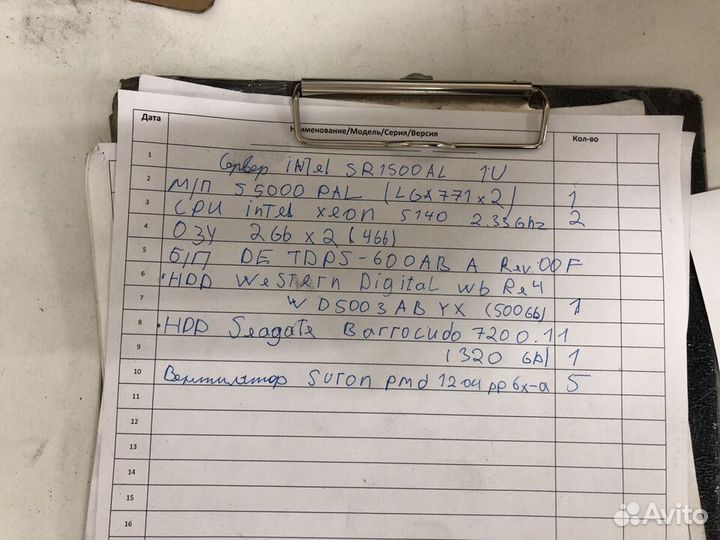 Дата
Наименование/Модель/Серия/Версия
Кол-во
1 Сервер intel SR1500AL 1U
2 М/П S5000 PAL (LGA771x2) 1
3 CPU intel xeon 5140 2.33Ghz 2
4 ОЗУ 2Gb x 2 (4Gb)
5 Б/П DE TDPS-600AB A Rev:00F
6 •HDD Western Digital Wb Re4
7 WD5003ABYX (500Gb) 1
8 •HDD Seagate Barrocudo 7200.11
9 (320 Gb) 1
10 Вентилятор Suron pmd 1204ppbx-a 5
11
12
13
14
15
16
Avito